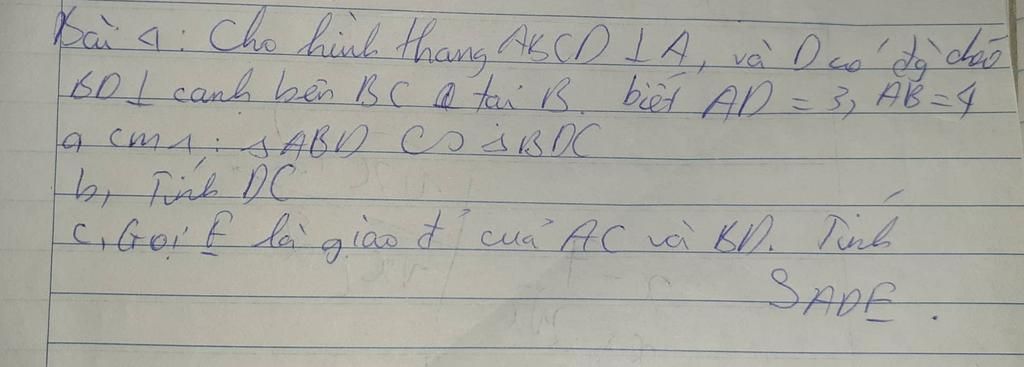 Bài 1: Cho hình thang ABCD ⊥ A, và D có đg chéo
BD ⊥ cạnh bên BC tại B. biết AD = 3, AB = 4
a cm1: ΔABD ∽ ΔBDC
b, Tính DC
c, Gọi E là giao đ' của AC và BD. Tính
S ADE.